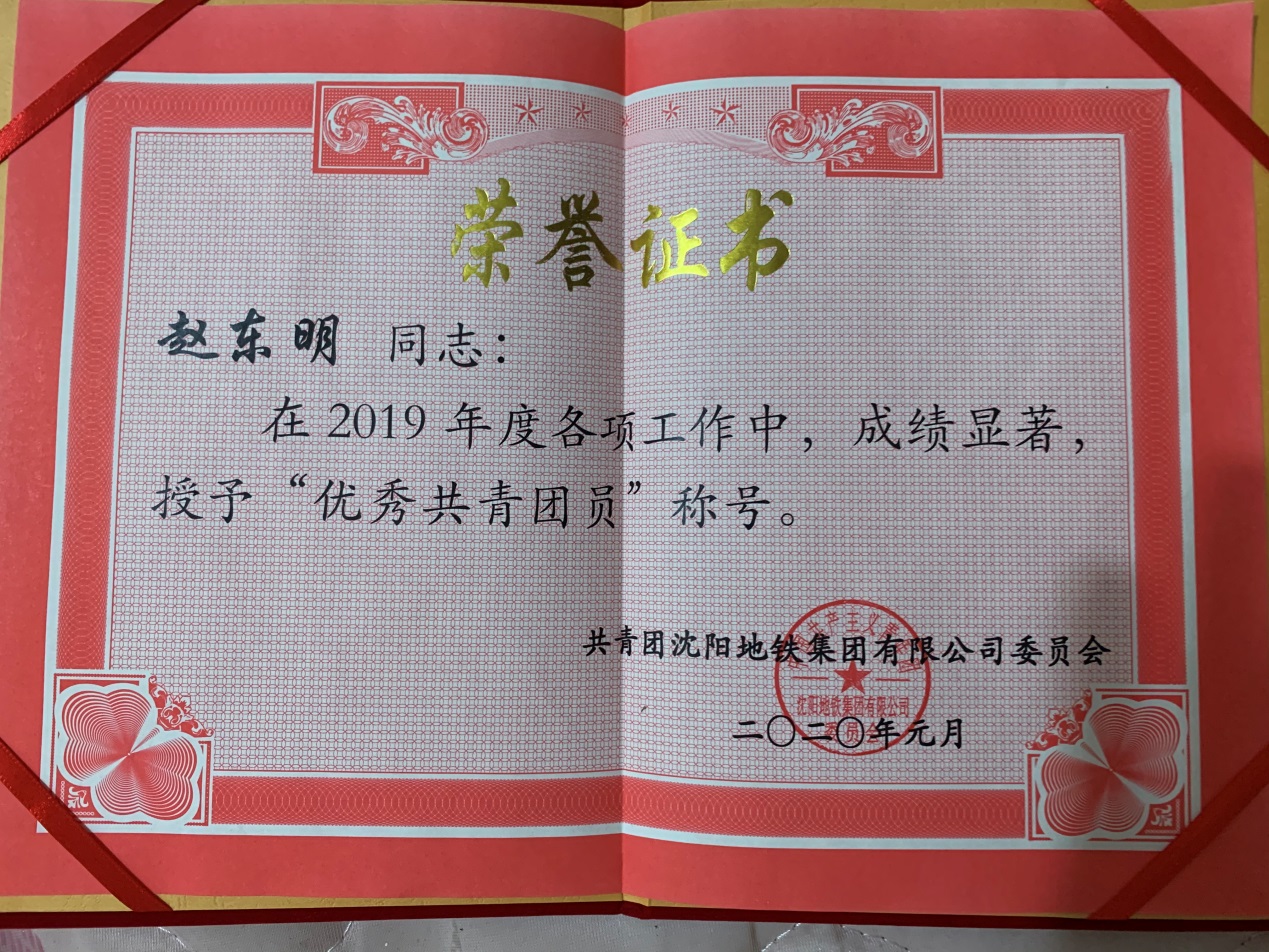 荣誉证书
赵东明 同志：
在 2019 年度各项工作中，成绩显著，
授予“优秀共青团员”称号。
共青团沈阳地铁集团有限公司委员会
沈阳地铁集团有限公司
委员会
二〇二〇年元月